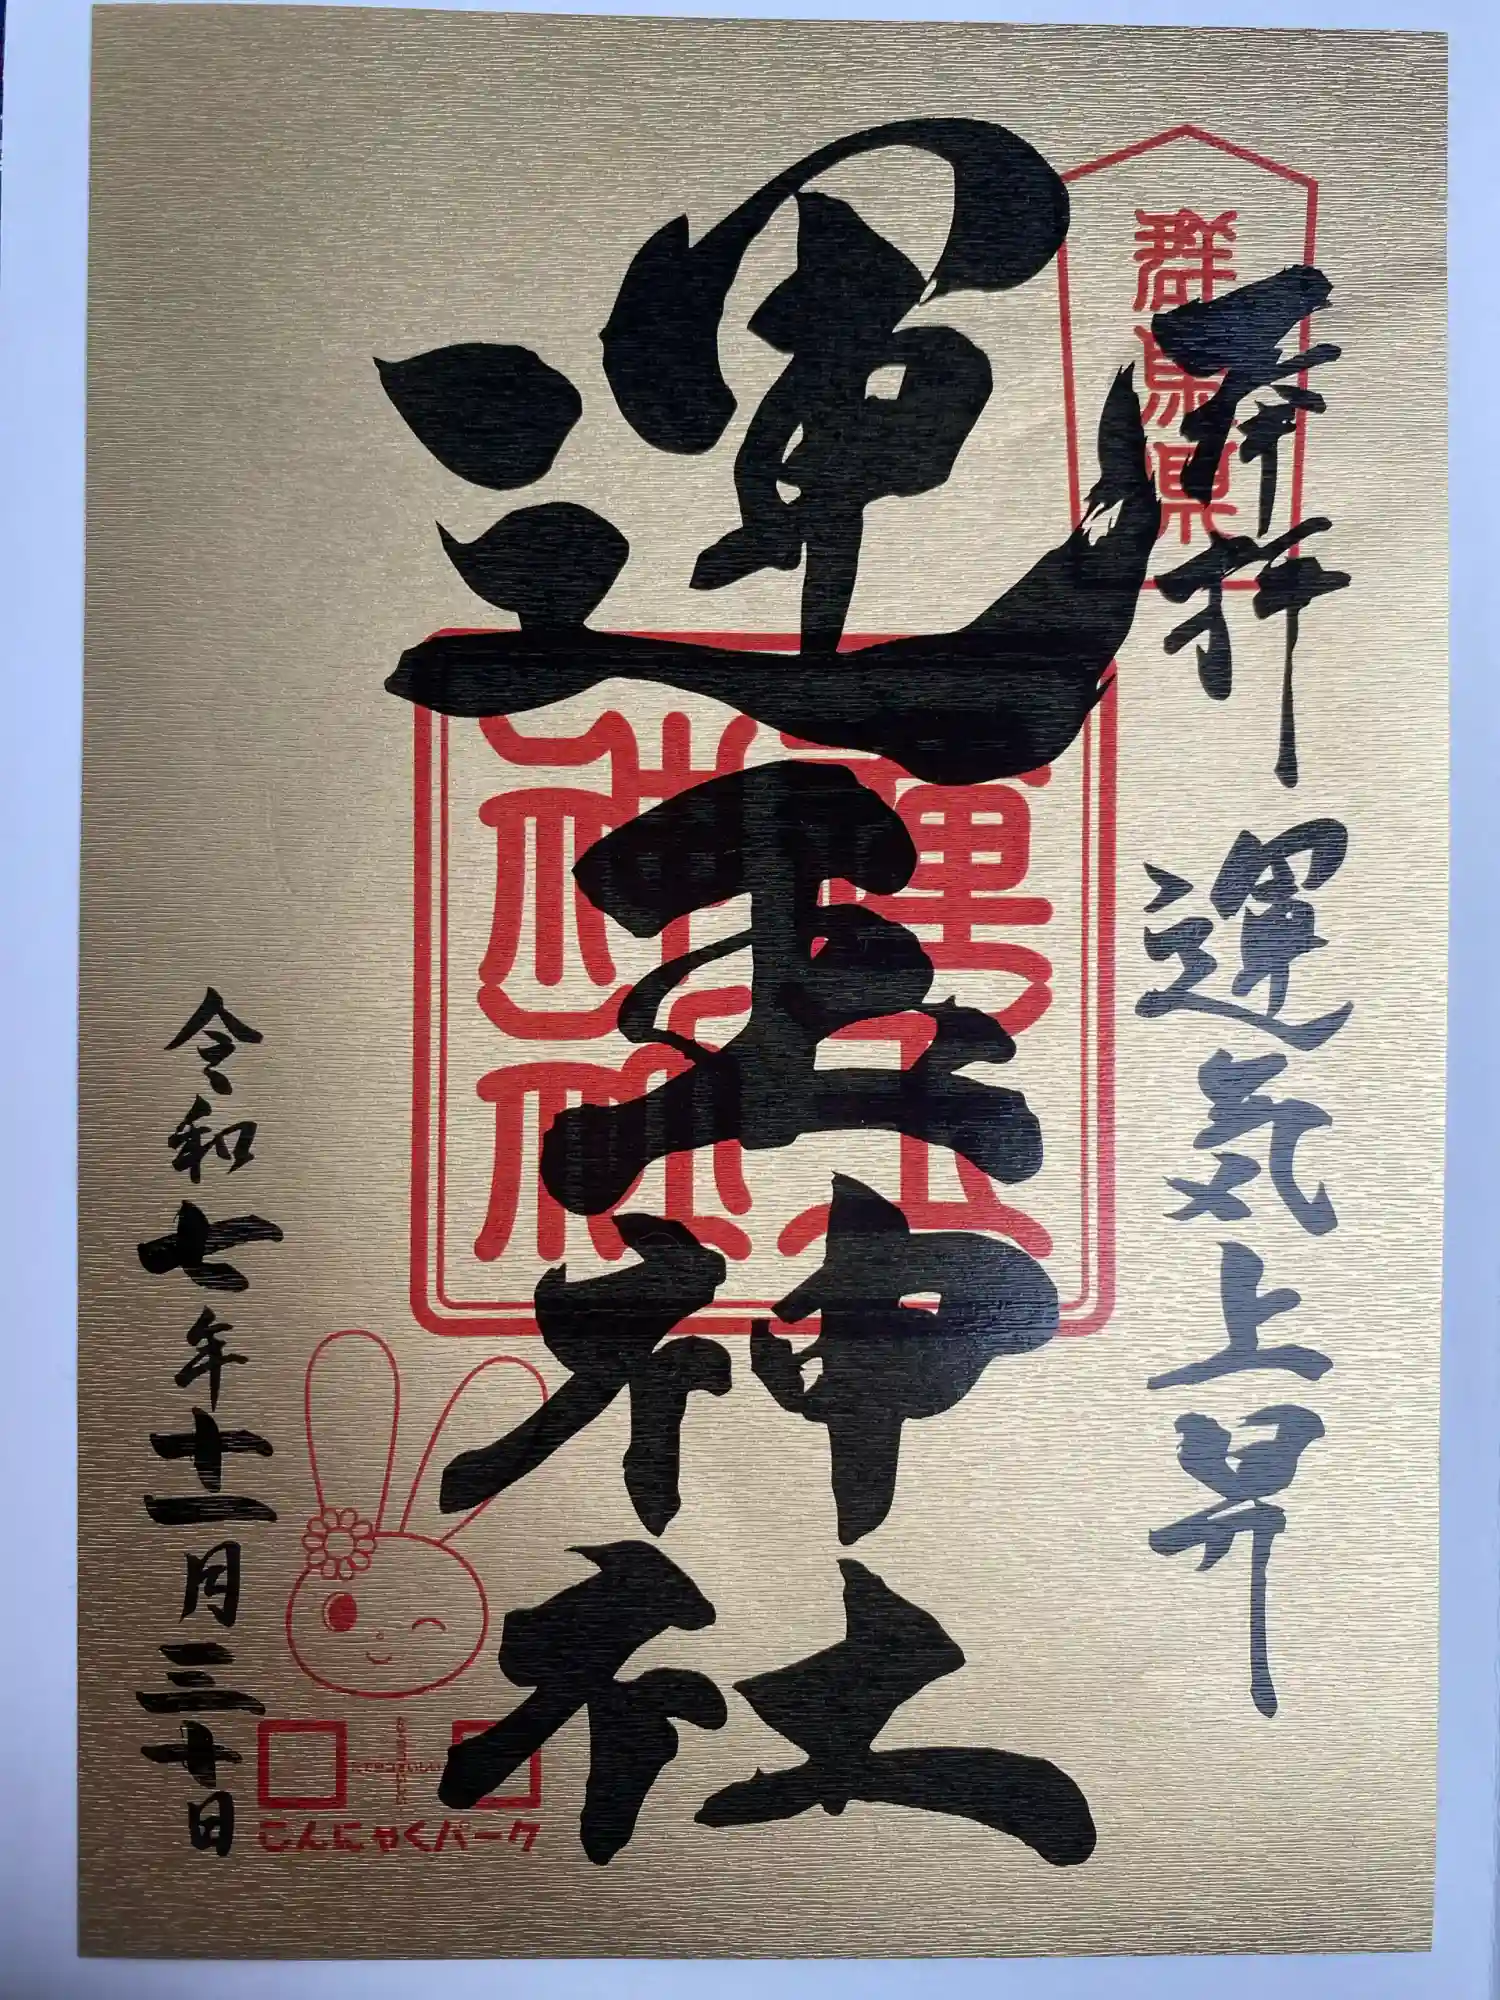 群馬県
奉拝
運気上昇
運玉神社
運玉
神社
令和七年十一月三十日
こんにゃくパーク